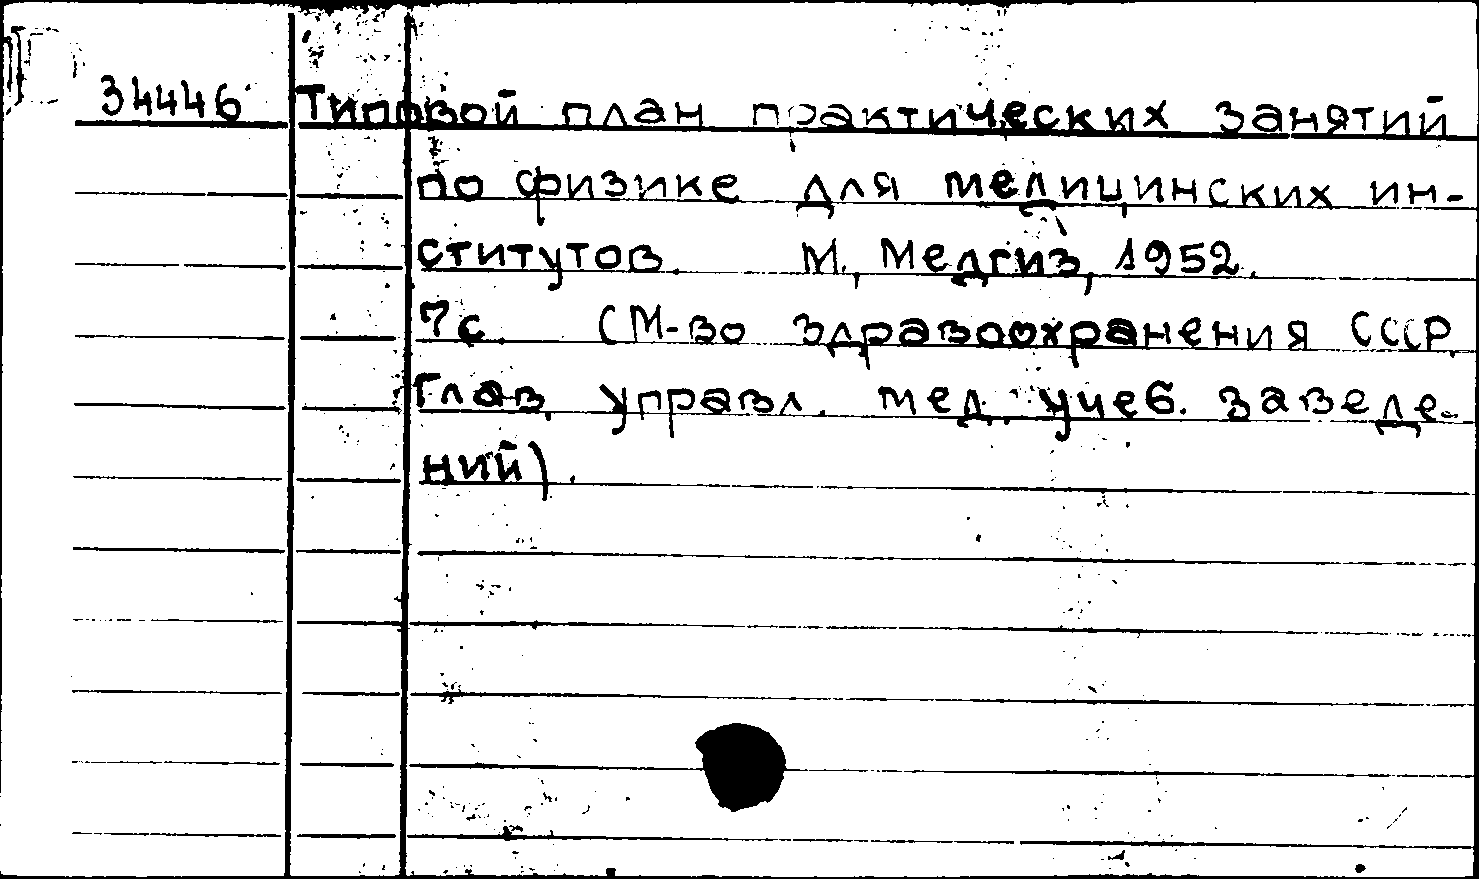 34446 Типовой план практических занятий
по физике для медицинских ин-
ститутов. М., Медгиз, 1952.
7 с. (М-во здравоохранения СССР.
Глав. управл. мед. учеб. заведе-
ний).